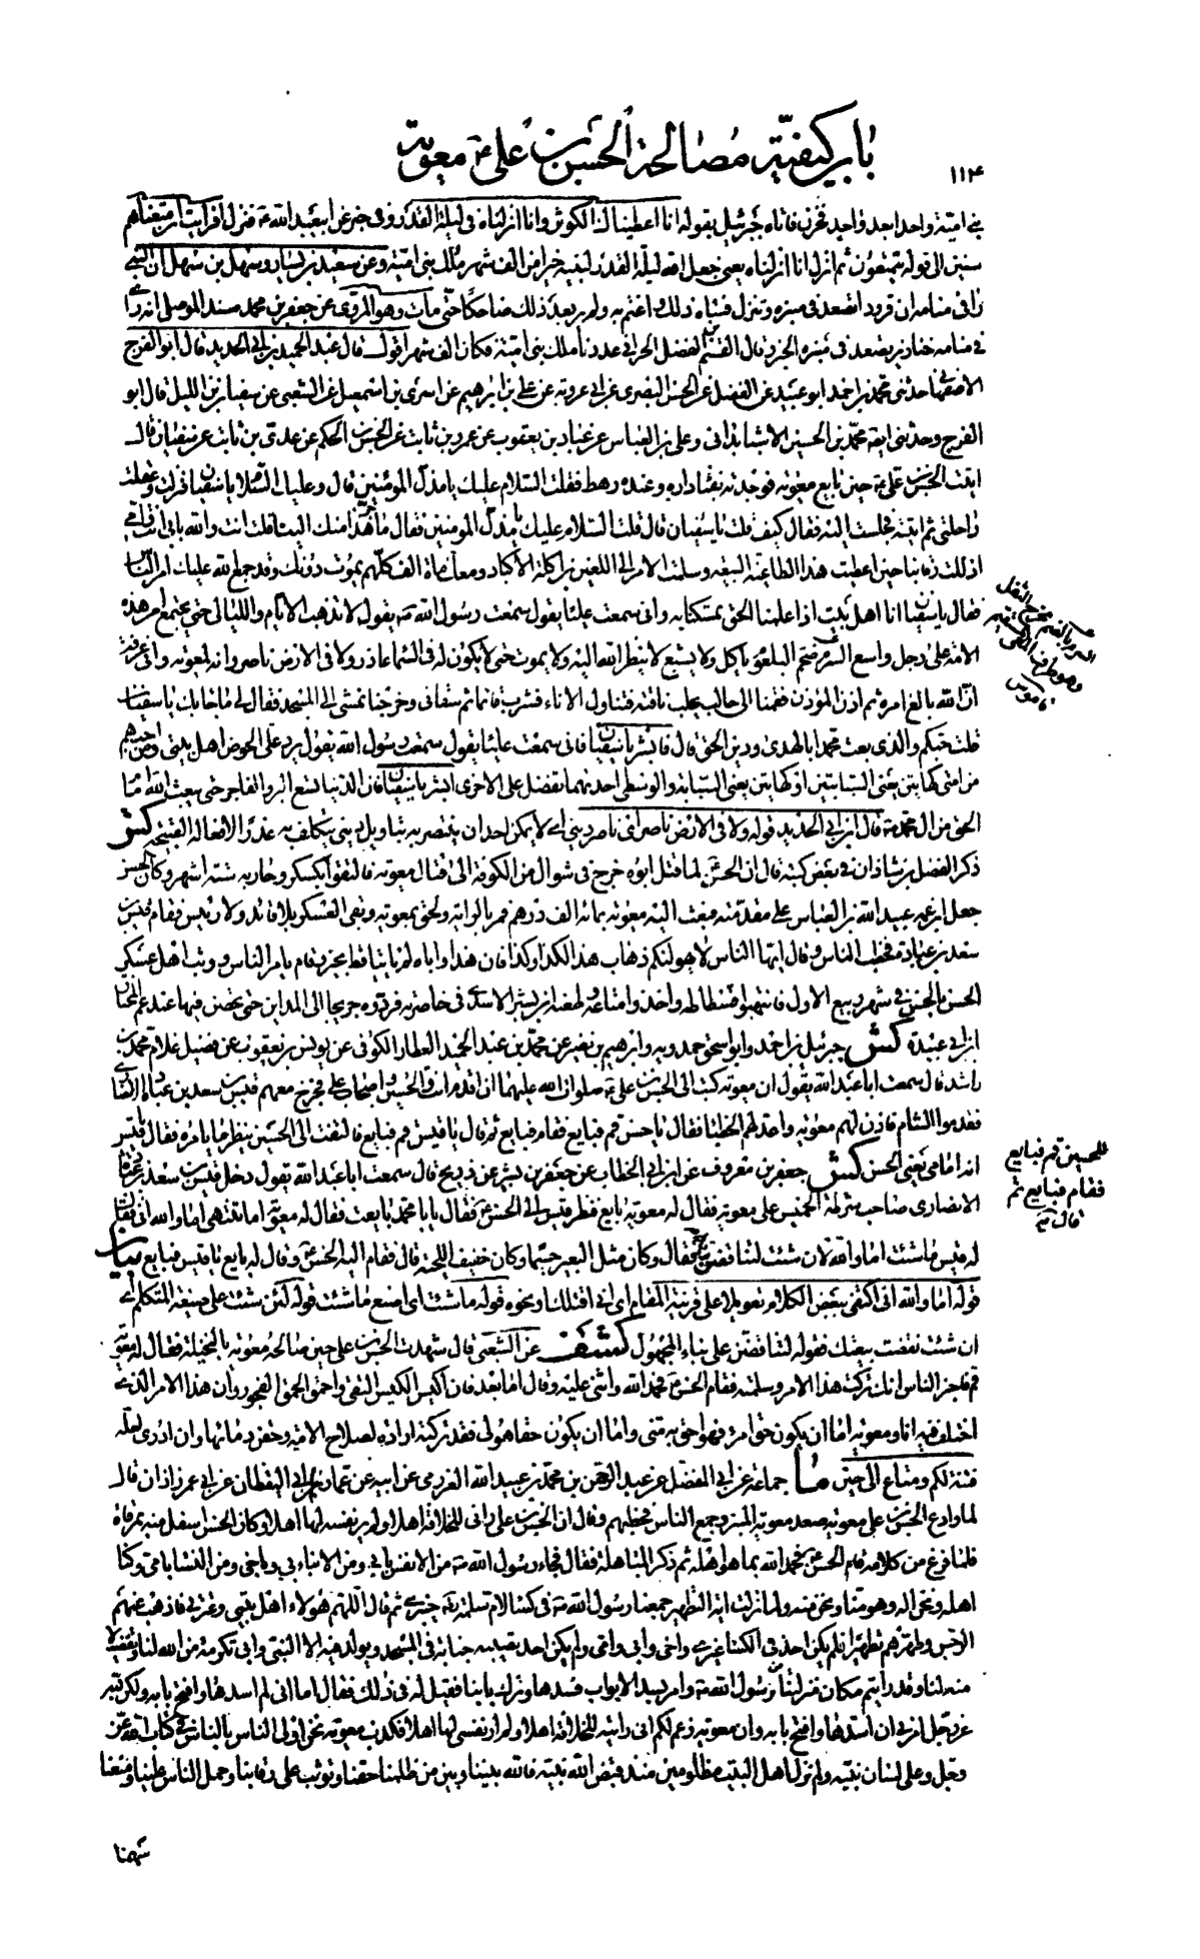 باب كيفية مصالحة الحسن بن على ع معوية
١١٤
بنى امية واحدا حد فواحد فحزن فاتاه جبرئيل بقوله انا اعطيناك الكوثر وانا انزلناه فى ليلة القدر وفى خبر عن ابيعبد الله ع فنزل افرايت ان متعناهم
سنين الى قوله يمتعون ثم انزل انا انزلناه يعنى جعل الله ليلة القدر لنبيه خيرا من الف شهر ملك بنى امية وعن سعيد بن يسار وسهل بن سهل ان النبى
راى فى منامه ان قرودا تصعد فى منبره وتنزل فساءه ذلك واغتم به ولم ير بعد ذلك ضاحكا حتى مات وهو المروى عن جعفر بن محمد مسند الموصلى انه راى
فى منامه خنازير يصعد فى منبره الخبر وقال القسم بن الفضل الحرانى عددنا ملك بنى امية فكان الف شهر اقول قال عبد الحميد بن ابى الحديد قال ابو الفرج
الاصفهانى حدثنى محمد بن احمد ابو عبيد عن الفضل عن الحسن البصرى عن ابى عروبة عن على بن ابرهيم عن اسرى بن اسمعيل عن الشعبى عن سفيان بن الليل قال ابو
الفرج وحدثنى ايضا محمد بن الحسين الاشنابدانى وعلى بن العباس عن عباد بن يعقوب عن عمرو بن ثابت عن الحسن بن الحكم عن عدى بن ثابت عن سفيان قال
اتيت الحسن بن على ع حين بايع معوية فوجدته بفناء داره وعنده رهط فقلت السلام عليك يا مذل المؤمنين قال وعليك السلام يا سفيان فنزلت وعقلت
راحلتى ثم اتيته فجلست اليه فقال كيف قلت يا سفيان قال قلت السلام عليك يا مذل المومنين فقال ما جر هذا منك الينا فقلت انت والله بابى انت وامى
اذللت رقابنا حين اعطيت هذا الطاغية البيعة وسلمت الامر الى اللعين بن اكلة الاكباد ومعك ماة الف كلهم يموت دونك وقد جمع الله عليك امر الناس
فقال يا سفيان انا اهل بيت اذا علمنا الحق تمسكنا به وانى سمعت عليا يقول سمعت رسول الله ص يقول لا تذهب الايام والليالى حتى يجتمع امر هذه
الامة على رجل واسع السرم ضخم البلعوم ياكل ولا يشبع لا ينظر الله اليه ولا يموت حتى لا يكون له فى السما عاذر ولا فى الارض ناصر وانه لمعوية وانى عرفت
ان الله بالغ امره ثم اذن المؤذن فقمنا الى حالب يحلب ناقته فتناول الاناء فشرب قائما ثم سقانى وخرجنا نمشى الى المسجد فقال لى ما جاء بك يا سفيان
قلت حبكم والذى بعث محمدا بالهدى ودين الحق قال فابشر يا سفيان فانى سمعت عليا يقول سمعت رسول الله يقول يرد على الحوض اهل بيتى ومن احبهم
من امتى كهاتين يعنى السبابتين او كهاتين يعنى السبابة والوسطى احديهما تفضل على الاخرى ابشر يا سفيان فان الدنيا تسع البر والفاجر حتى يبعث الله امام
الحق من ال محمد ص قال ابن ابى الحديد قوله ولا فى الارض ناصر اى ناصر دينى اى لا يمكن احد ان ينتصر له بتاويل دينى يتكلف به عذرا لافعاله القبيحة كش
ذكر الفضل بن شاذان فى بعض كتبه قال ان الحسن لما قتل ابوه خرج فى شوال من الكوفة الى قتال معوية فالتقوا بكسكر وحاربه ستة اشهر وكان الحسن
جعل ابن عمه عبيد الله بن العباس على مقدمته فبعث اليه معوية بمائة الف درهم فمر بالراية ولحق بمعوية وبقى العسكر بلا قائد ولا رئيس فقام قيس بن
سعد بن عبادة فخطب الناس وقال ايها الناس لا يهولنكم ذهاب هذا لكذا وكذا فان هذا واباه لم ياتيا قط بخير وقام بامر الناس ووثب اهل عسكر
الحسن بالحسن فى شهر ربيع الاول فانتهبوا فسطاطه واخذوا متاعه وطعنه ابن بشر الاسدى فى خاصرته فردوه جريحا الى المداين حتى تحصن فيها عند عم المختار
ابن ابى عبيدة كش جبرئيل بن احمد وابو اسحق حمدويه وابرهيم بن نصير عن محمد بن عبد الحميد العطار الكوفى عن يونس بن يعقوب عن فضيل غلام محمد بن
راشد قال سمعت ابا عبد الله يقول ان معوية كتب الى الحسن بن على صلوات الله عليهما ان اقدم انت والحسين واصحاب على فخرج معهم قيس بن سعد بن عبادة الانصارى
فقدموا الشام فاذن لهم معوية واعد لهم الخطباء فقال يا حسن قم فبايع فقام فبايع ثم قال يا قيس قم فبايع فالتفت الى الحسين ينظر ما يامره فقال يا قيس
انه امامى يعنى الحسن كش جعفر بن معروف عن ابن ابى الخطاب عن جعفر بن بشير عن ذريح قال سمعت ابا عبد الله يقول دخل قيس بن سعد بن عبادة
الانصارى صاحب شرطة الخميس على معوية فقال له معوية بايع فنظر قيس الى الحسن ع فقال يا با محمد بايعت فقال له معوية اما تنتهى اما والله انى فقال
له قيس ما شئت اما والله لان شئت لتناقضن فقال وكان مثل البعير جسما وكان خفيف اللحية قال فقام اليه الحسن ع وقال له بايع يا قيس فبايع بيان
قوله اما والله انى اكتفى ببعض الكلام تعويلا على قرينة المقام اى انى اقتلك ونحوه قوله ما شئت اى اصنع ما شئت قوله لئن شئت على صيغة المتكلم اى
ان شئت نقضت بيعتك فقوله لتناقضن على بناء المجهول كشف عن الشعبى قال شهدت الحسن بن على حين صالحه معوية بالنخيلة فقال له معوية
قم فاخبر الناس انك تركت هذا الامر وسلمته فقام الحسن ع فحمد الله واثنى عليه وقال اما بعد فان اكيس الكيس التقى واحمق الحمق الفجور وان هذا الامر الذى
اختلف فيه انا ومعوية اما ان يكون حق امرء فهو احق به منى واما ان يكون حقا هو لى فقد تركته ارادة لصلاح الامة وحقن دمائها وان ادرى لعله
فتنة لكم ومتاع الى حين ما جماعة عن ابى المفضل عن عبد الرحمن بن محمد بن عبيد الله العزرمى عن ابيه عن عمار ابى اليقظان عن ابى عمر زاذان قال
لما وادع الحسن بن على معوية صعد معوية المنبر وجمع الناس فخطبهم وقال ان الحسن بن على رانى للخلافة اهلا ولم ير نفسه لها اهلا وكان الحسن اسفل منه بمرقاة
فلما فرغ من كلامه قام الحسن ع فحمد الله بما هو اهله ثم ذكر المباهلة فقال فجاء رسول الله ص من الانفس بابى ومن الابناء بى وباخى ومن النساء بامى وكنا
اهله ونحن اله وهو منا ونحن منه ولما نزلت اية التطهير جمعنا رسول الله ص فى كساء لام سلمة رض خيبرى ثم قال اللهم هؤلاء اهل بيتى وعترتى فاذهب عنهم
الرجس وطهرهم تطهيرا فلم يكن احد فى الكساء غيرى واخى وابى وامى ولم يكن احد يصيبه جنابة فى المسجد ويولد فيه الا النبى وابى تكرمة من الله لنا وتفضيلا
منه لنا وقد رايتم مكان منزلنا من رسول الله ص وامر بسد الابواب فسدها وترك بابنا فقيل له فى ذلك فقال اما انى لم اسدها وافتح بابه ولكن الله
عز وجل امرنى ان اسدها وافتح بابه وان معوية زعم لكم انى رايته للخلافة اهلا ولم ار نفسى لها اهلا فكذب معوية نحن اولى الناس بالناس فى كتاب الله عز
وجل وعلى لسان نبيه ولم نزل اهل البيت مظلومين منذ قبض الله نبيه فالله بيننا وبين من ظلمنا حقنا وتوثب على رقابنا وحمل الناس علينا ومنعنا
سهمنا
السرم بالضم مخرج الثفل
وهو طرف المعى المستقيم
قاموس
للحسين قم فبايع
فقام فبايع ثم
قال ص